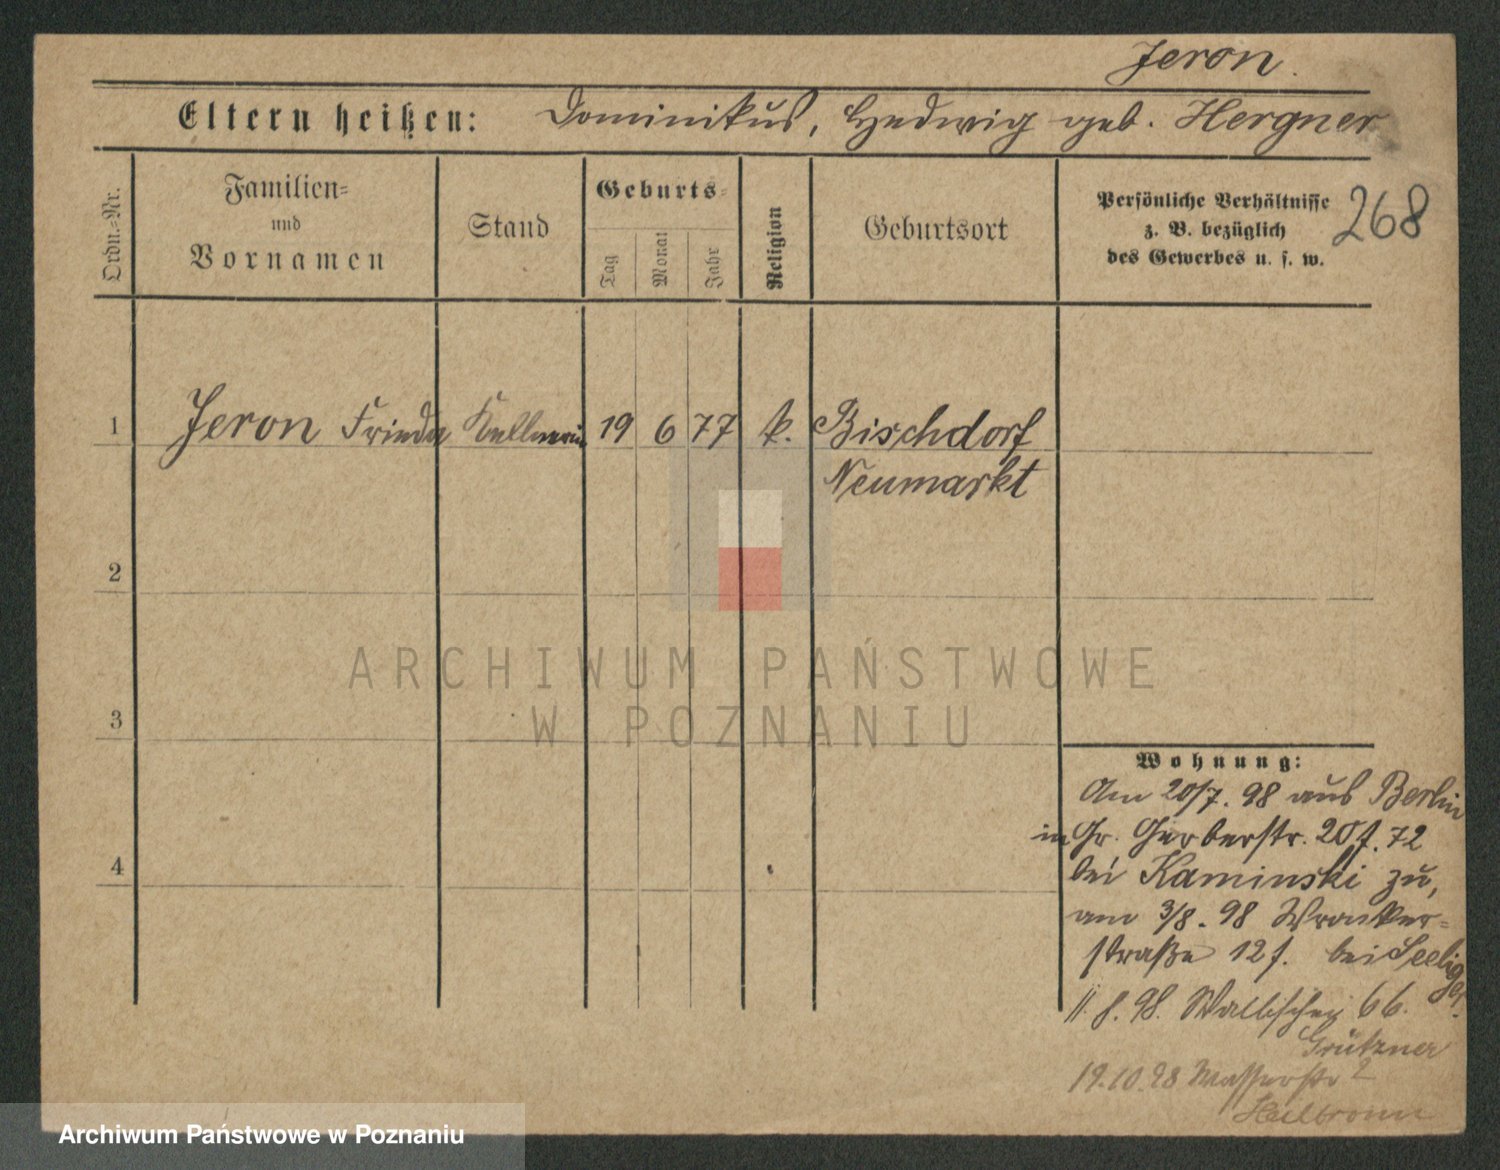 Jeron.
Eltern heißen: Dominikus, Hedwig geb. Hergner
Ordn.-Nr.
Familien-
und
Vornamen
Stand
Geburts-
Tag
Monat
Jahr
Religion
Geburtsort
Persönliche Verhältnisse
z. B. bezüglich
des Gewerbes u. s. w.
268
1 Jeron Frieda Kellnerin 19 6 77 k. Bischdorf
Neumarkt
2
3
4
ARCHIWUM PAŃSTWOWE
W POZNANIU
Wohnung:
Am 20/7. 98 aus Berlin
in Gr. Gerberstr. 20 72
bei Kaminski zu,
am 3/8. 98 Wronker-
straße 12 bei Seeliger.
11. 8. 98. Wallischei 66.
Grützner
19.10.98 Wasserstr 2
Heilbronn
Archiwum Państwowe w Poznaniu